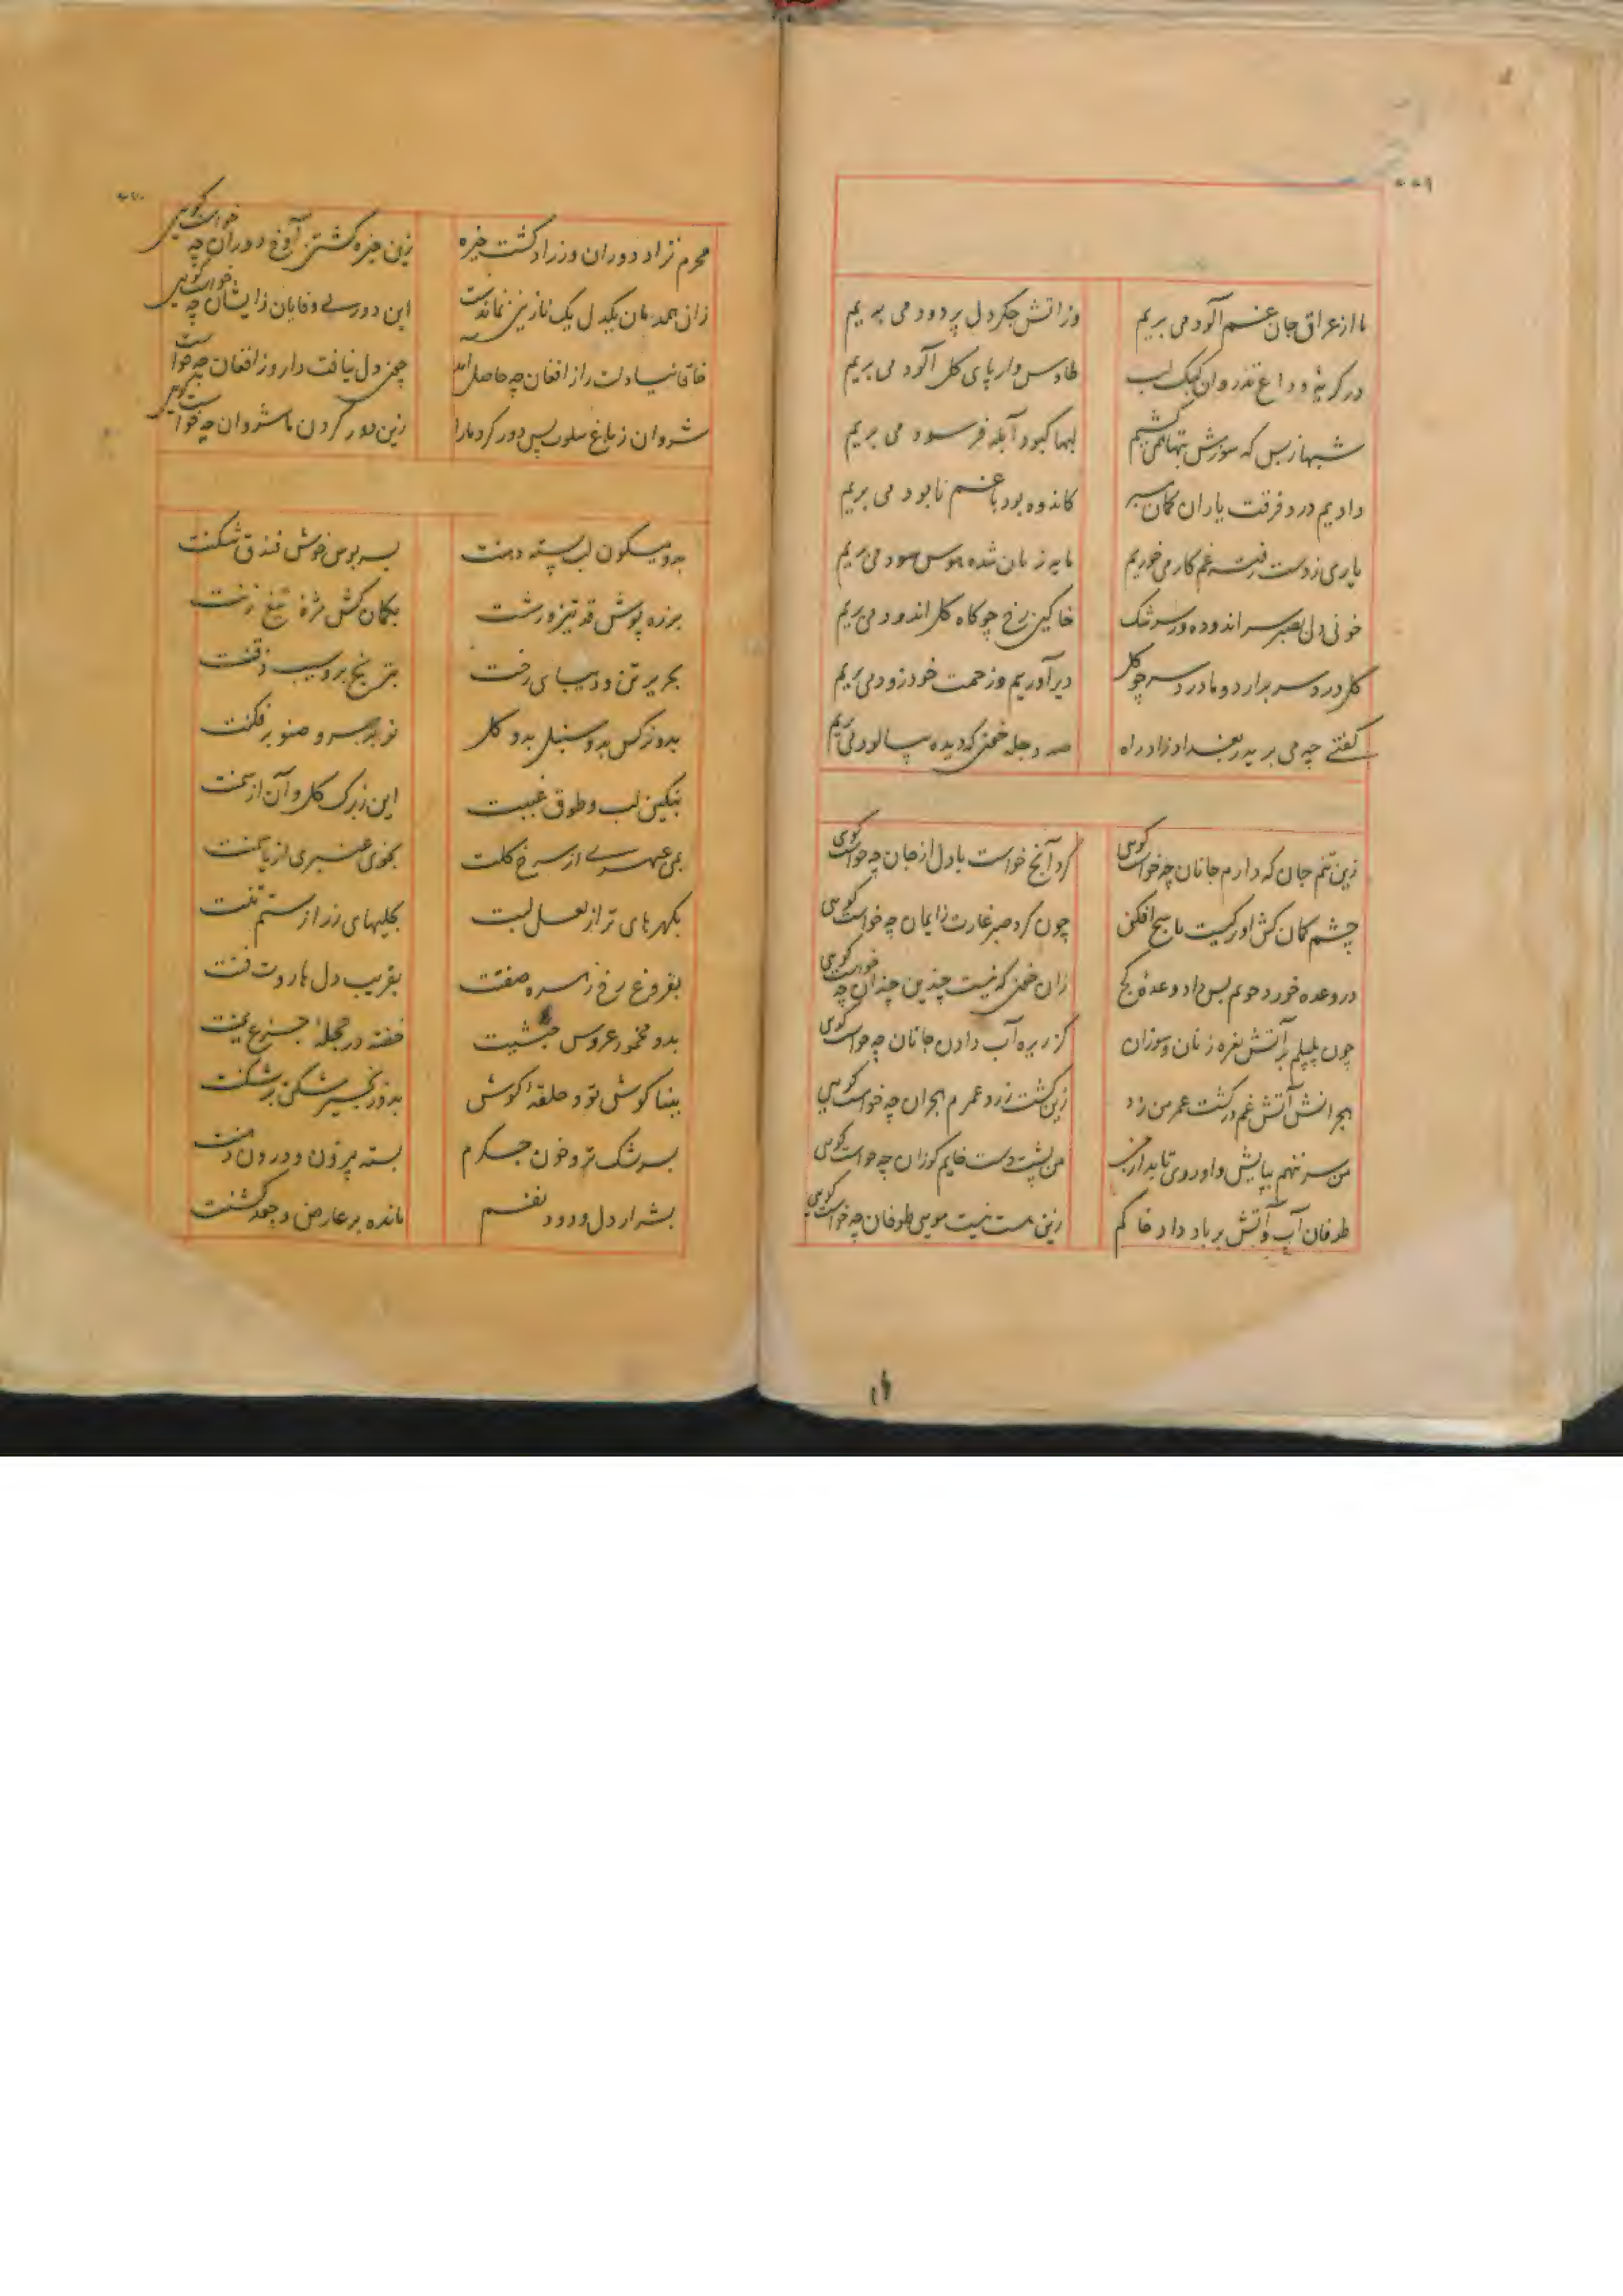 ما از عراق جان غم آلود می بریم
وز اتش جکر دل پر دود می بریم
در کریه وداع تذروان کبک لب
طاوس وار پای کل آلود می بریم
شبها ز بس که سوزش تبها می کشیم
لبها کبود و آبله فرسود می بریم
دادیم درد فرقت یاران کمان مبر
کاندوه بود یا غم نابود می بریم
یاری ز دست رفته غم کار می خوریم
مایه زیان شده هوس سود می بریم
خونی دل بصبر سر اندوده در سرشک
خاکین رخ چو کاه کل اندود می بریم
کل درد سر برارد و ما درد سر چو کل
دیر آوریم و زحمت خود زود می بریم
کفتی چه می برید ز بغداد زاد راه
صد دجله خون که دیده بپالود می بریم
زین نیم جان که دارم جانان چه خواست کویی
کرد آنچ خواست با دل از جان چه خواست کویی
چشم کمان کش او ترکیست یاسج افکن
چون کرد صبر غارت ز ایمان چه خواست کویی
در وعده خورد خونم پس داد وعده کج
زان خون که نیست چندین چندان چه خواست کویی
چون پلپلم بر آتش نعره زنان و سوزان
کز زیره آب دادن جانان چه خواست کویی
هجرانش آتش غم در کشت عمر من زد
زین کشت زرد عمرم هجران چه خواست کویی
من سر نهم بپایش و او روی تابد از من
من پشت دست خایم کو زان چه خواست کویی
طوفان آب و آتش بر باد داد خاکم
زین هست نیست مویی طوفان چه خواست کویی
محرم نزاد دوران ور زاد کشت خیره
زین خیره کشتن آوخ دوران چه خواست کویی
زان همدمان یکدل یک نازنین نماندست
این دور بی وفایان ز ایشان چه خواست کویی
خاقانیا دلت را ز افغان چه حاصل آمد
چون دل نیافت دارو ز افغان چه خواست کویی
شروان ز باغ سلوت بس دور کرد ما را
زین دور کردن ما شروان چه خواست کویی
بدو میکون لب پسته دهنت
بسه بوس خوش فندق شکنت
بزره پوش قد تیز روشت
بکمان کش مژه تیغ زنت
بحریر تن و دیبای رخت
بترنج بر و سیب ذقنت
بدو نرکس بدو سنبل بدو کل
نو بر سرو صنوبر فکنت
بنکین لب و طوق غببت
این ز برک کل و آن از سمنت
بمی عبهری از سرخ کلت
بخوی عنبری از یاسمنت
بکهرهای تر از لعل لبت
بکلیهای زر از سیم تنت
بفروغ رخ زهره صفتت
بفریب دل هاروت فنت
بدو مخمور عروس حبشیت
خفته در حجله جزع یمنت
ببنا کوش تو و حلقه کوش
بدو زنجیر شکن بر شکنت
بسرشک تر و خون جکرم
بسته بیرون و درون دهنت
بشرار دل و دود نفسم
مانده بر عارض و جعد کشنت